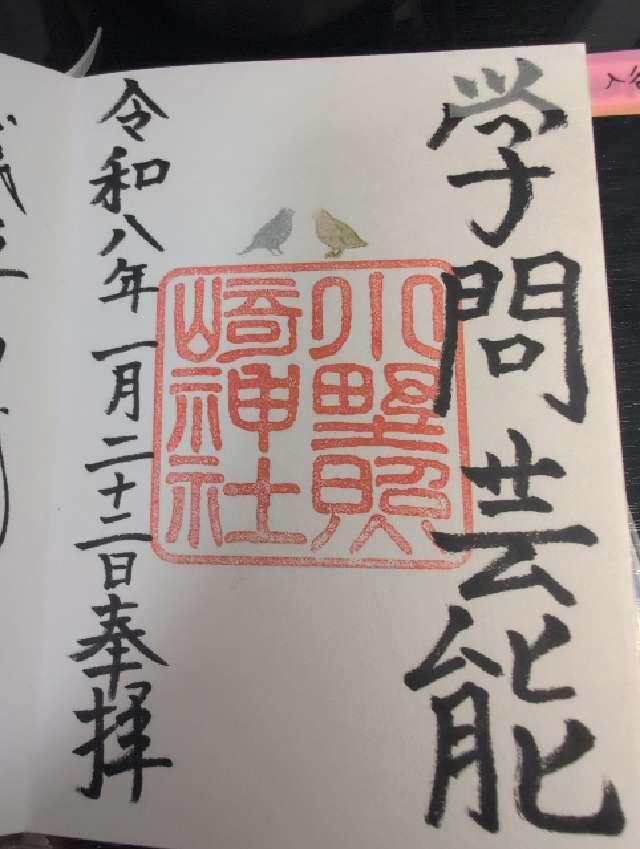 学問芸能
小野照
崎神社
令和八年一月二十二日奉拝